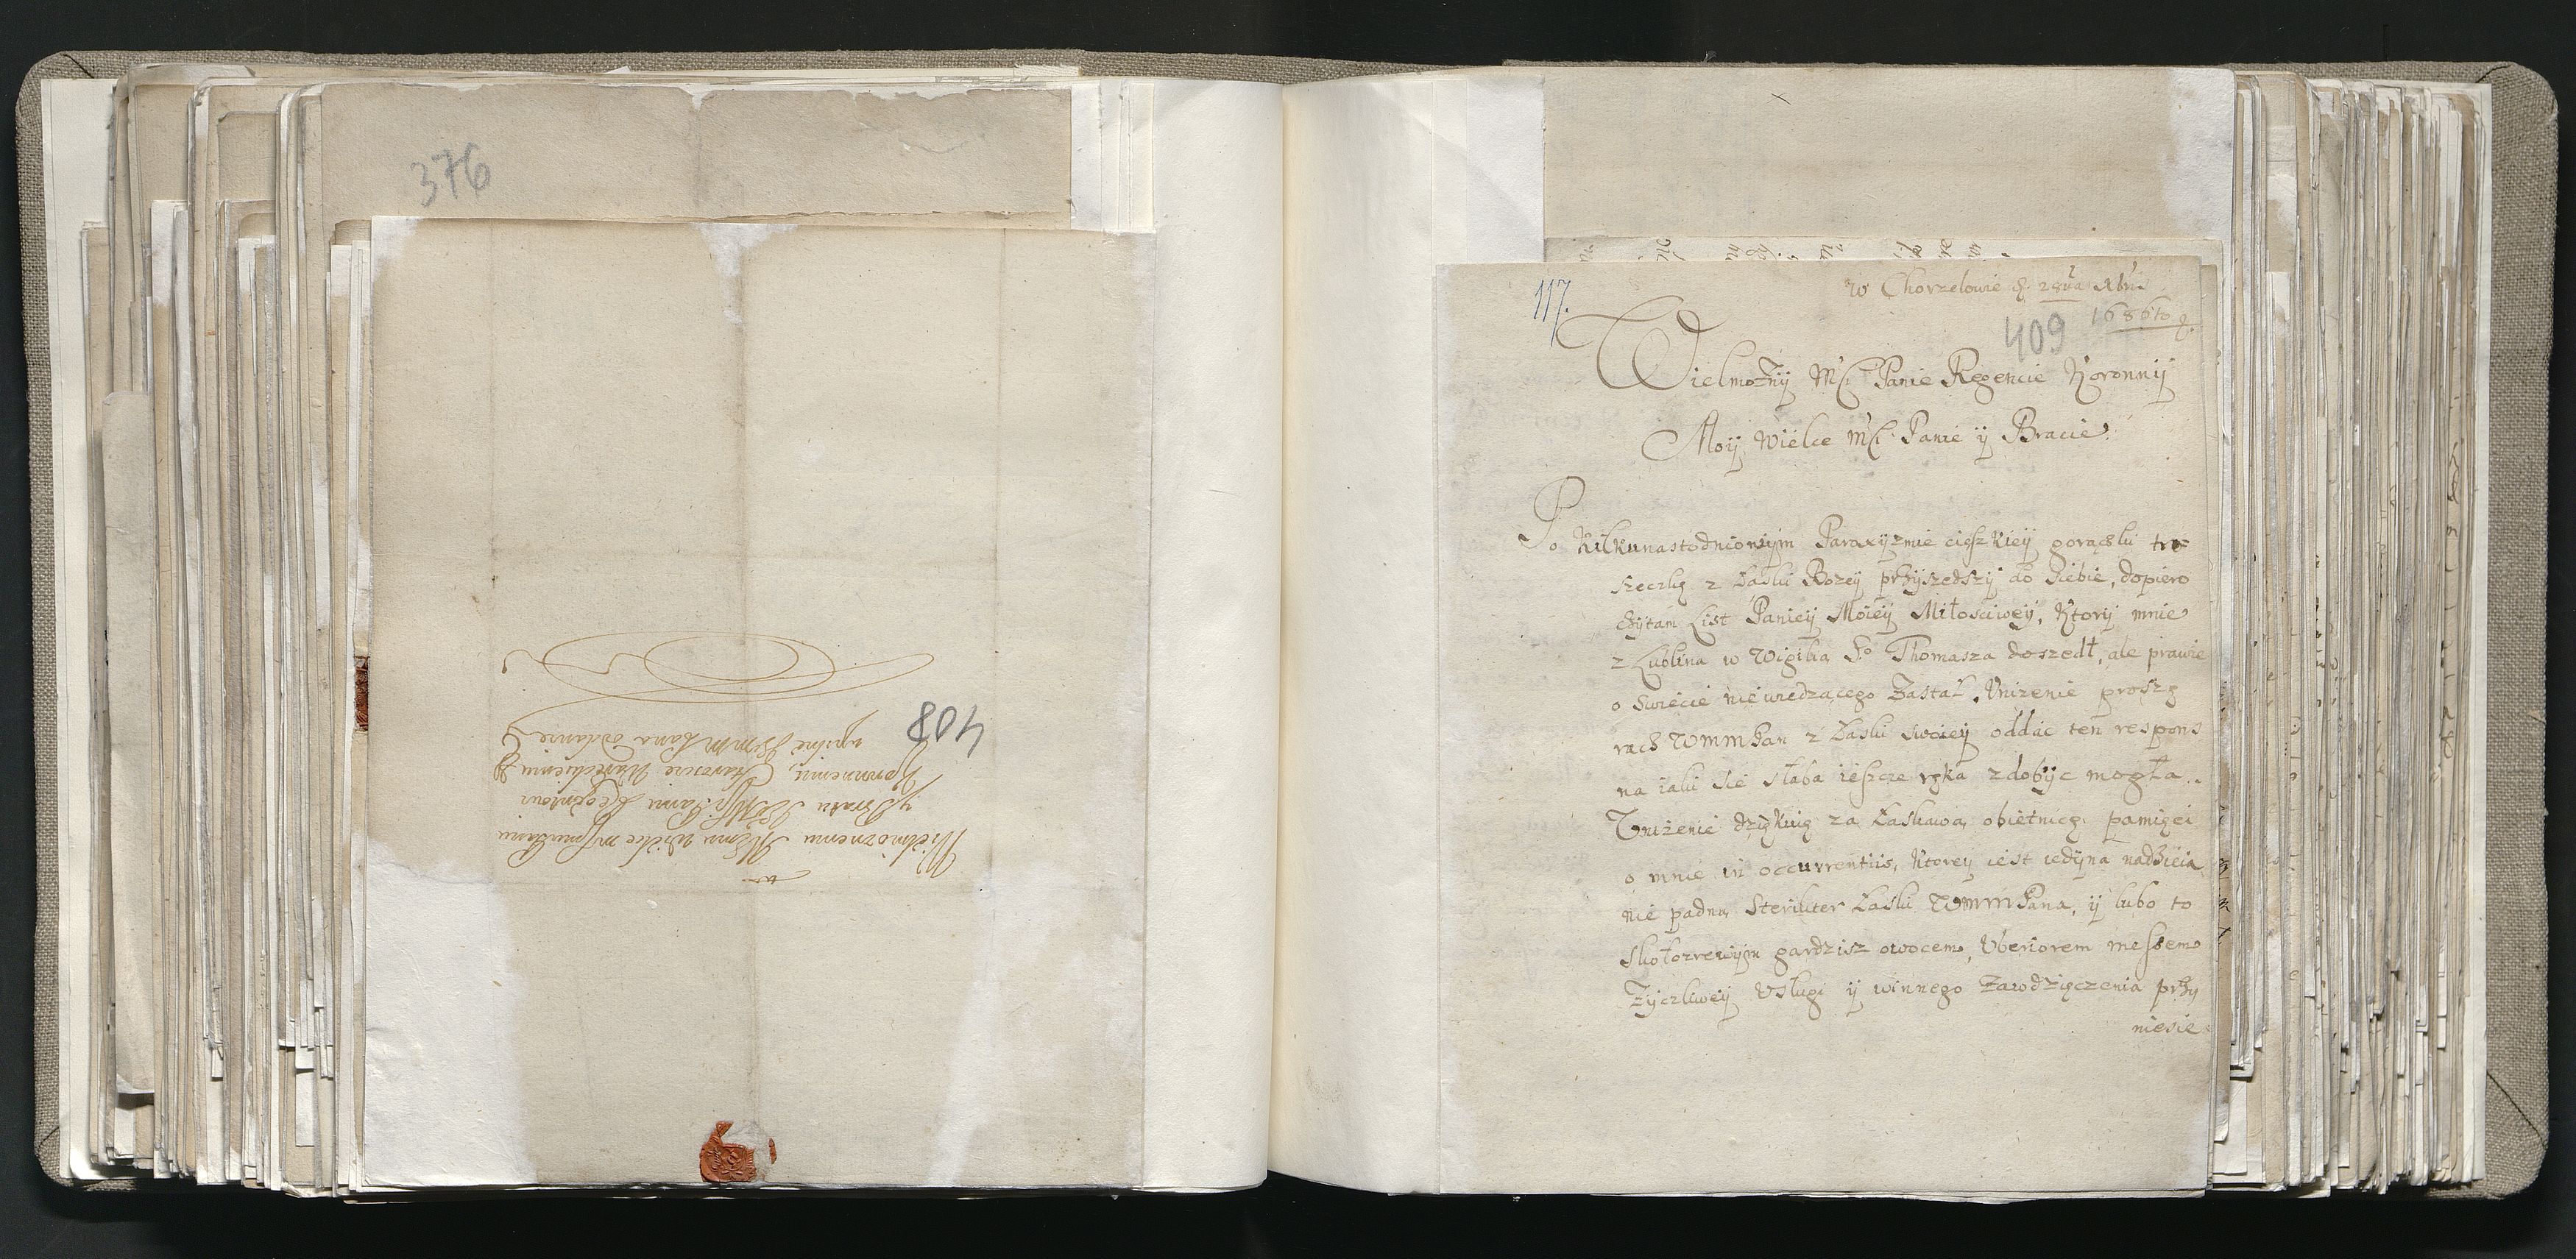 376
408
Wielmoznemu Memu wielce Mſciwemu Panu
y Bratu Panu Regentowi
Koronnemu, Staroscie
pilne Pana oddanie
117.
w Chorzelowie d. 28va Xbris
1686to
409
Wielmożnÿ MCi Panie Regencie Koronnÿ
Moÿ Wielce MCi Panie ÿ Bracie
Po Kilkunastodniowÿm Paraxÿzmie cięszkieÿ gorączki tro
szeczkę z Łaski Bozeÿ przÿszedszÿ do siebie, dopiero
czÿtam List Panieÿ Moieÿ Miłosciweÿ, Ktorÿ mnie
z Lublina w Wigilią So Thomasza doszedł, ale prawie
o swiecie niewiedzącego Zastał. Unizenie proszę
racz WMMPan z Łaski swoieÿ oddac ten respons
na iaki sie słaba ieszcze ręka zdobÿc mogła.
Unizenie dziękuię za Łaskawą obietnicę pamięci
o mnie in occurrentiis, Ktorey iest iedÿna nadzieia
nie padną steriliter Łaski WMMPana, ÿ lubo to
skołozrewÿm gardzisz owocem, Uberiorem meſsem
Zÿczliweÿ Usługi ÿ winnego Zawdzięczenia przÿ
niesie